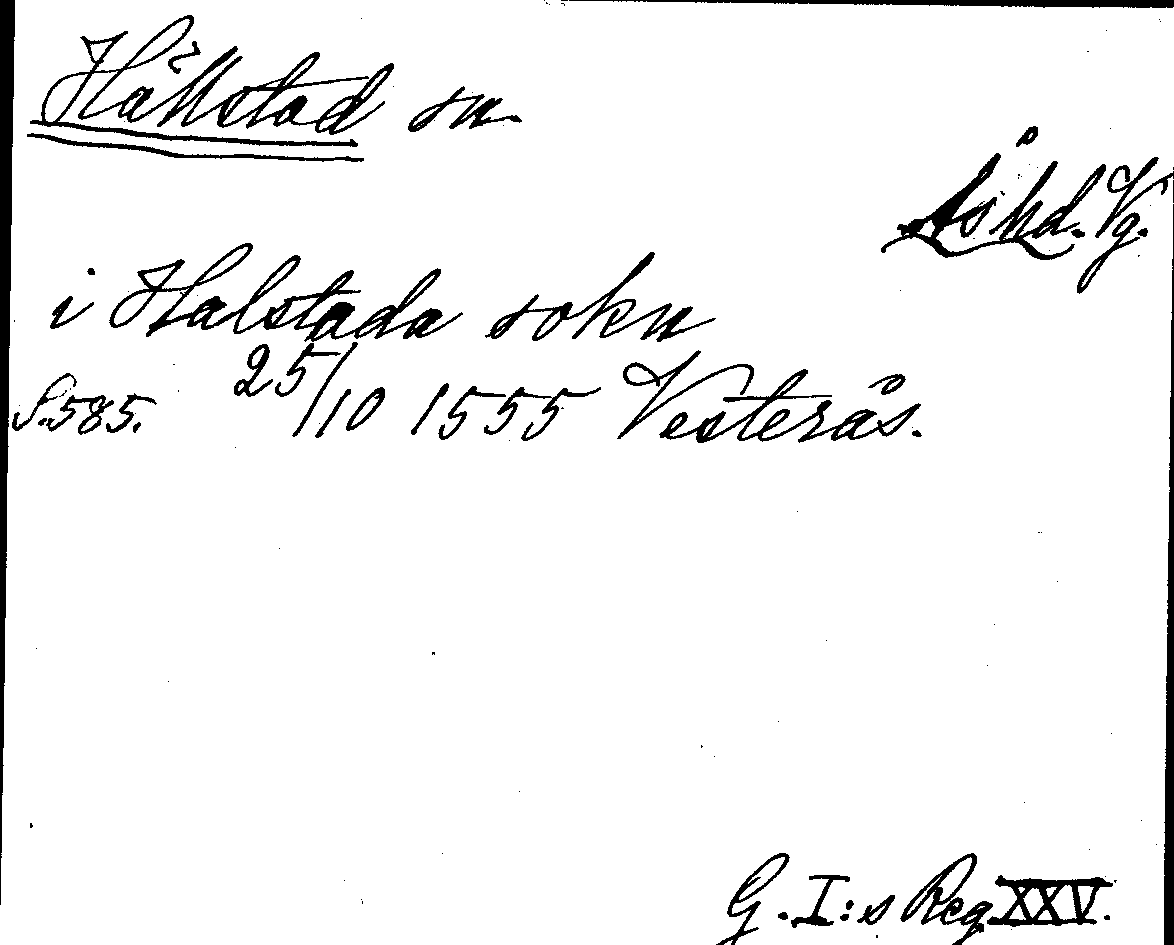 Hällstad sn.
Ås hd. Vg.
i Halstada sokn
S. 585. 25/10 1555 Vesterås.
G. I:s Reg. XXV.